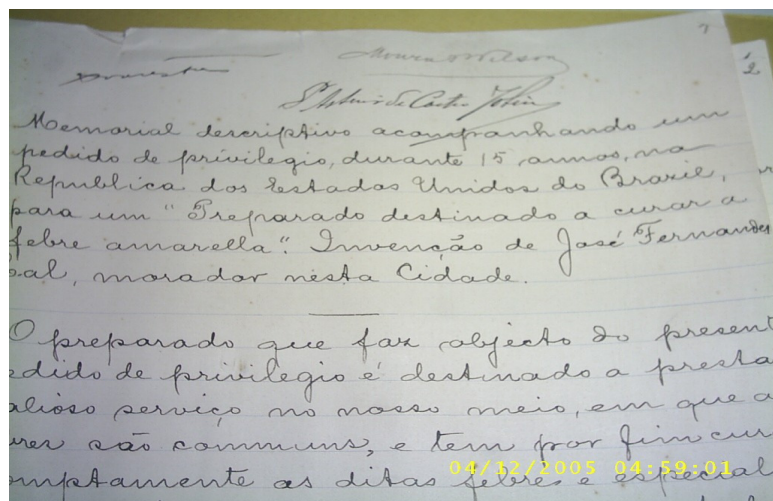 Moura & Wilson
Memorial descriptivo acompanhando um
pedido de privilegio, durante 15 annos, na
Republica dos Estados Unidos do Brazil,
para um "Preparado destinado a curar a
febre amarella". Invenção de José Fernandes
morador nesta Cidade.
O preparado que faz objecto do present
edido de privilegio é destinado a presta
alioso serviço no nosso meio, em que a
res são communs, e tem por fim cur
omptamente as ditas febres e especial
04/12/2005 04:59:01
2